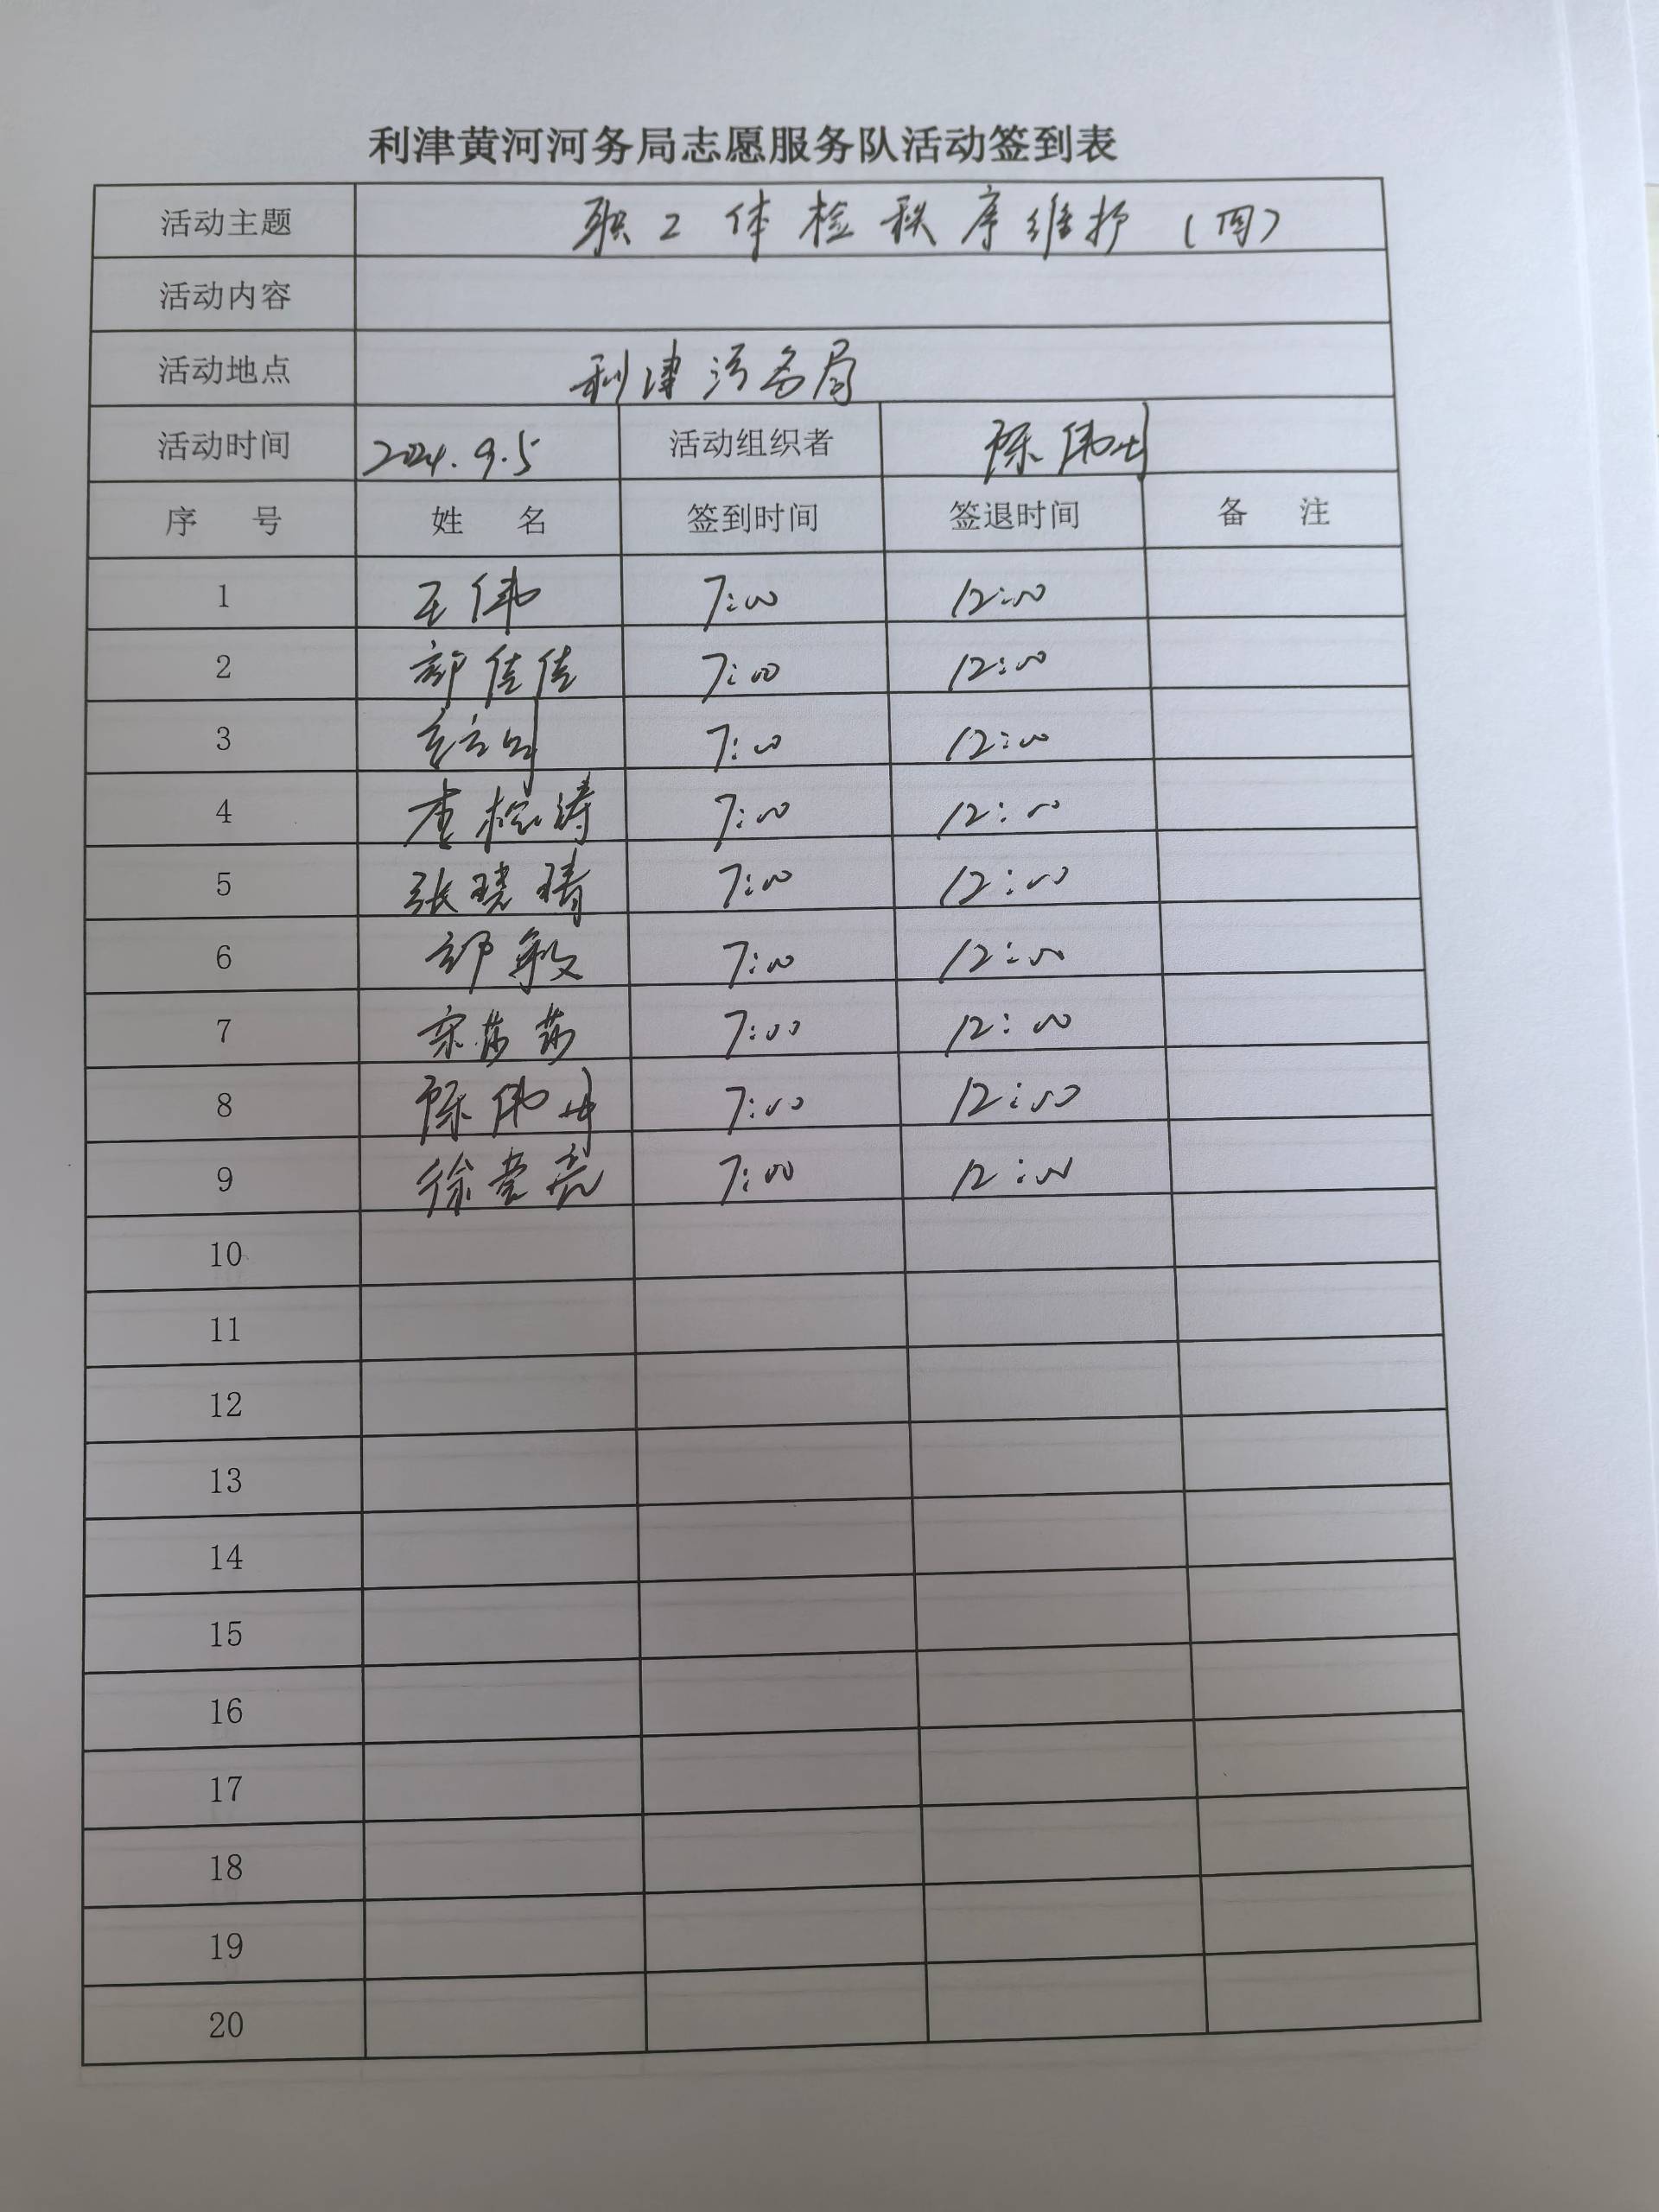 利津黄河河务局志愿服务队活动签到表
活动主题 职工体检秩序维护（四）
活动内容
活动地点 利津河务局
活动时间 2024.9.5 活动组织者 陈伟
序 号 姓 名 签到时间 签退时间 备 注
1 王伟 7:00 12:00
2 佳佳 7:00 12:00
3 7:00 12:00
4 涛 7:00 12:00
5 张晓晴 7:00 12:00
6 敏 7:00 12:00
7 宋莎莎 7:00 12:00
8 陈伟 7:00 12:00
9 徐亮 7:00 12:00
10
11
12
13
14
15
16
17
18
19
20